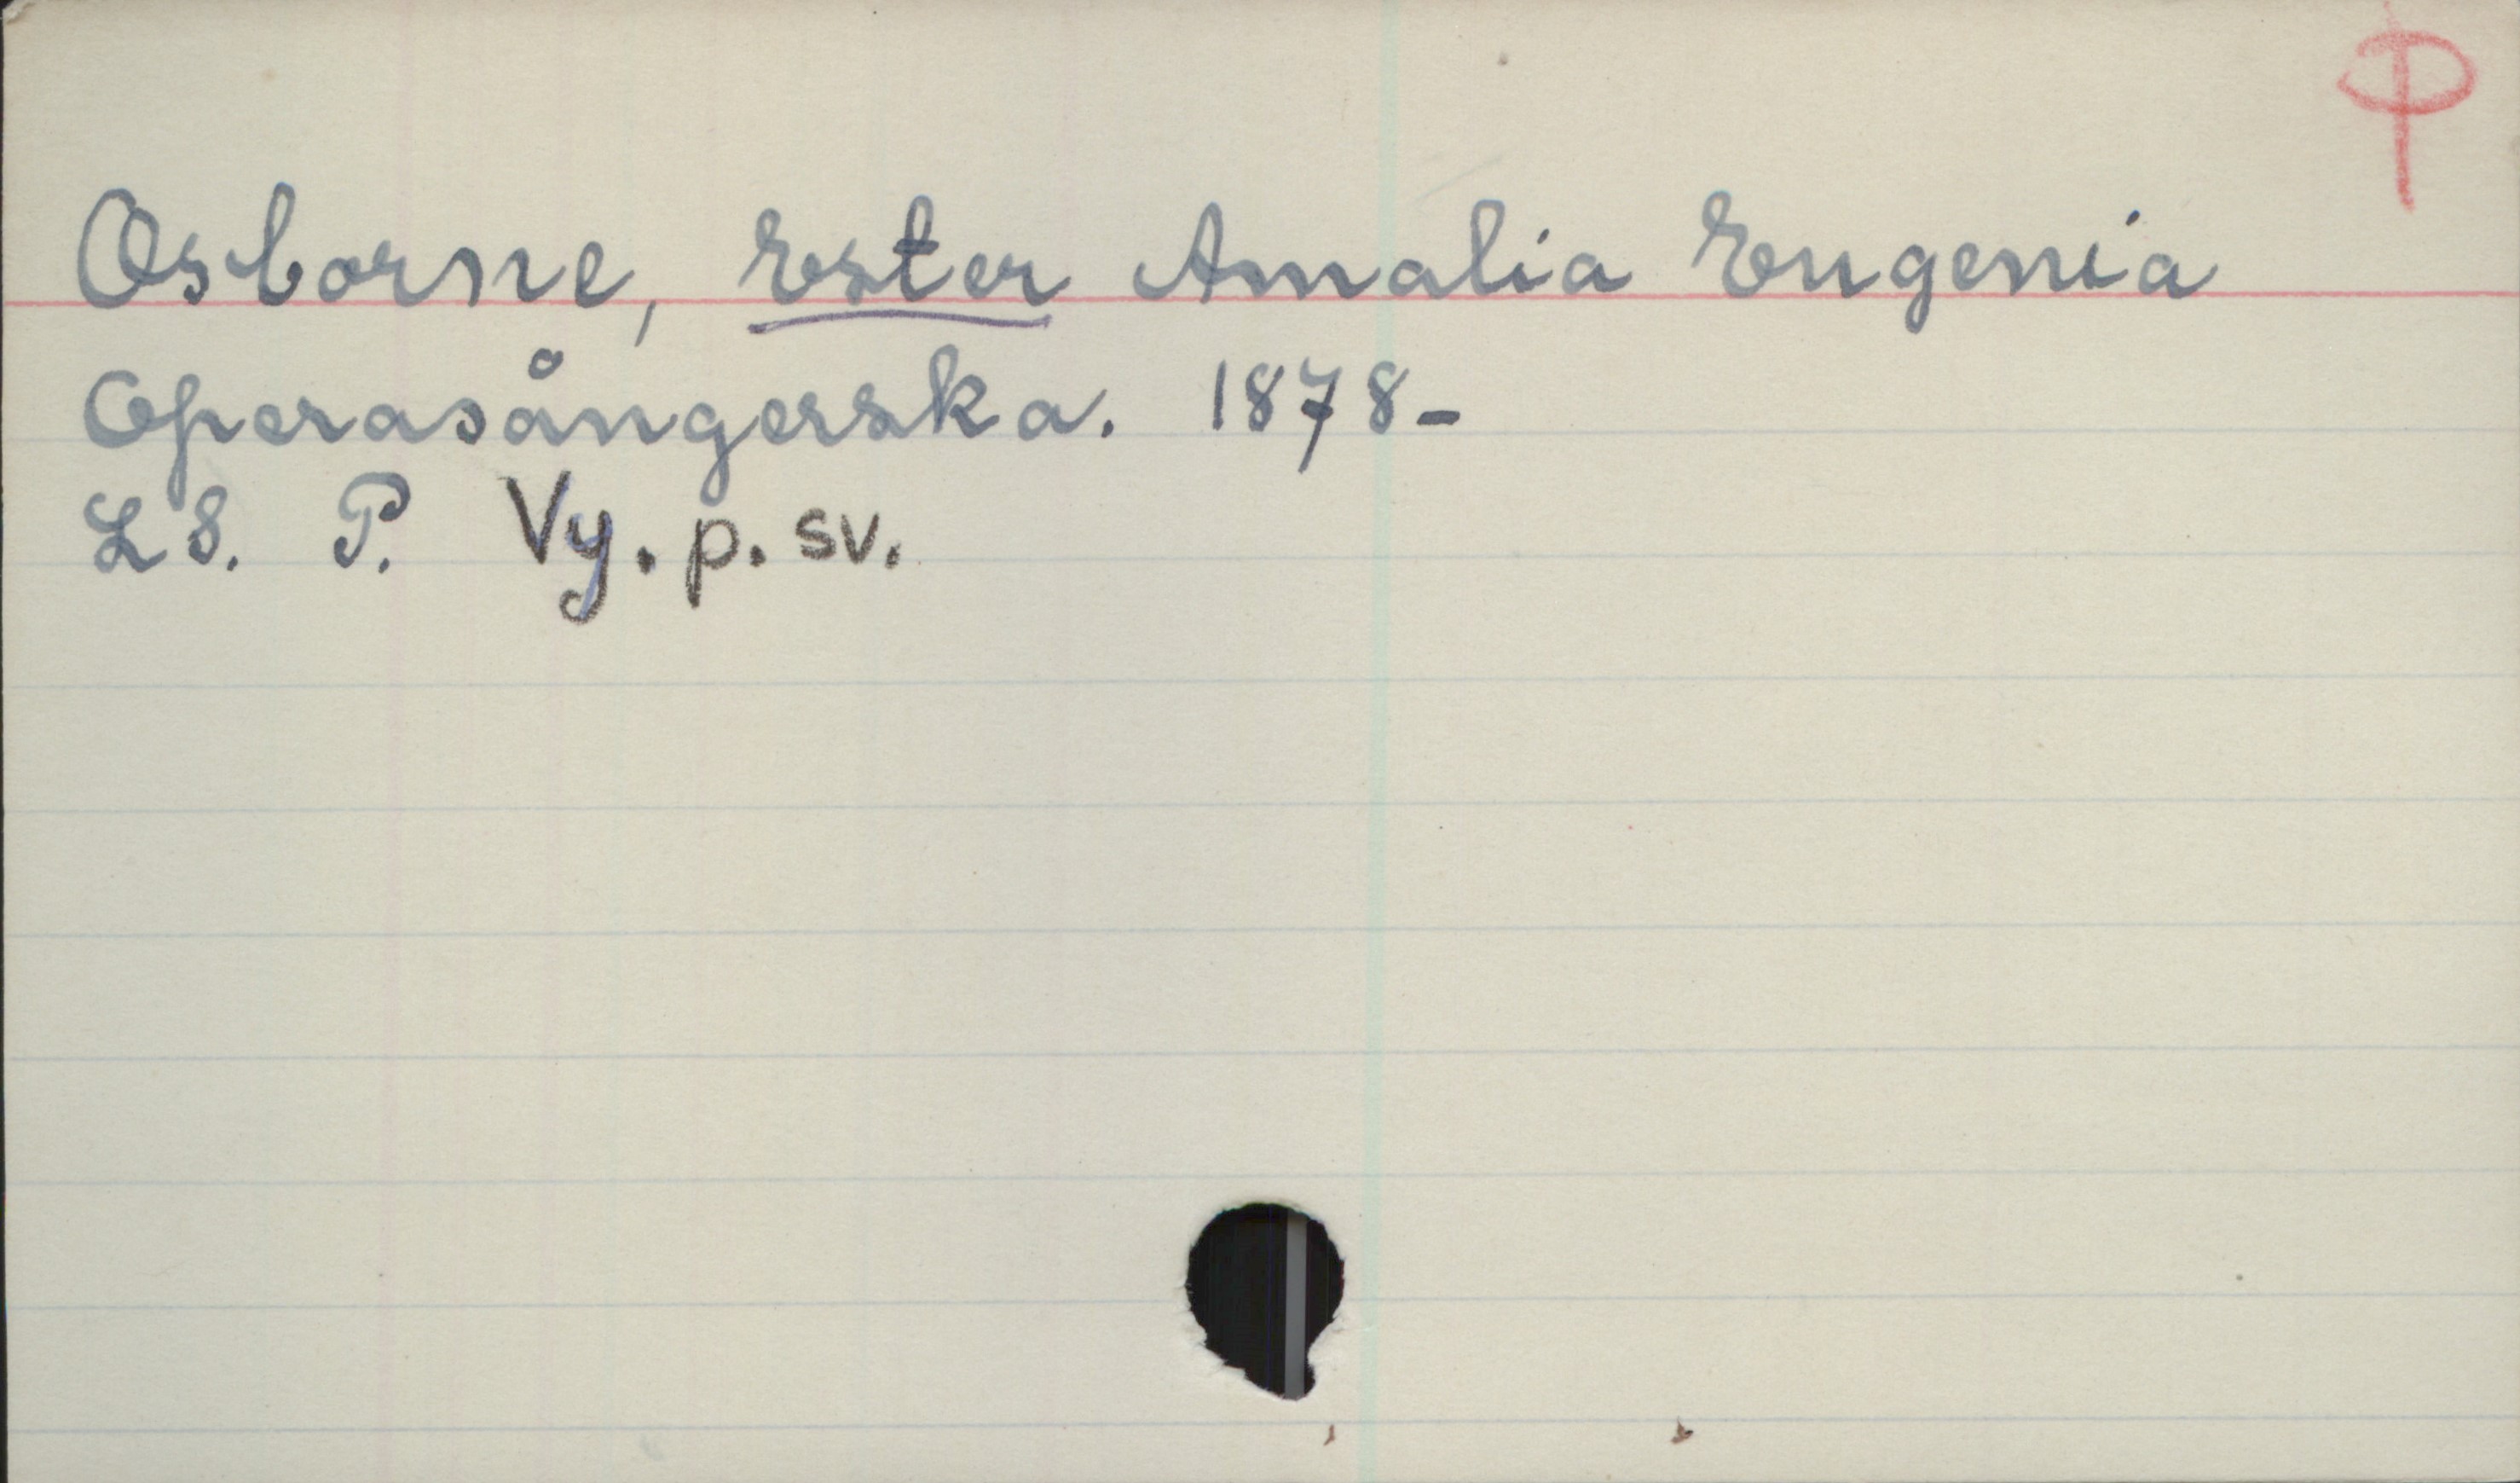 P
Osborne, Ester Amalia Eugenia
Operasångerska. 1878-
L8. P. Vy. p. sv.